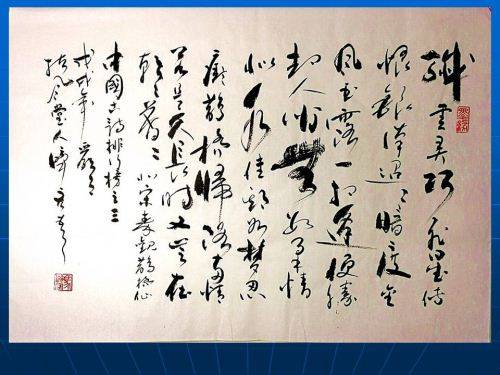 纖雲弄巧飛星传
恨銀漢迢迢暗度金
風玉露一相逢便勝
却人间無数柔情
似水佳期如梦忍
顧鵲橋歸路兩情
若是久長时又豈在
朝朝暮暮 北宋秦觀鵲橋仙
中國古詩排行榜之三
戊戌年